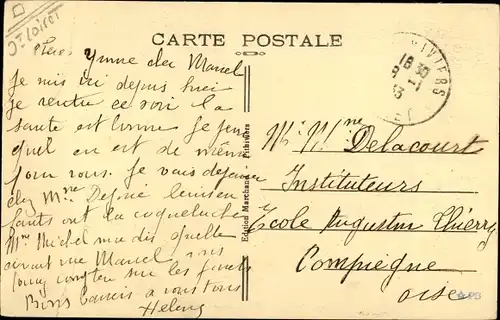 Dt Loiret
CARTE POSTALE
Chers Yvonne et Marcel
Je suis ici depuis hier
je rentre ce soir la
santé est bonne Je pense
quel en est de même
pour vous. Je vais déjeuner
chez Mme
enfants ont la coqueluche
Mme Michel ma dit quelle
avait vue Marcel
compter sur les jours
Bons baisers a vous tous
Helene
Edition Marchand - Pithiviers
PITHIVIERS
18 30
8 - 1
33
Mr Mme Delacourt
Instituteurs
Ecole Augustin Thierry
Compiegne
oise